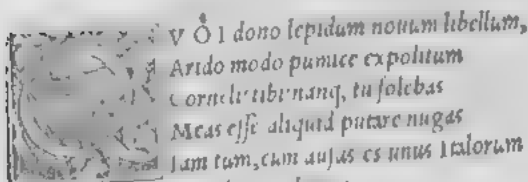 V Ó I dono lepidum nouum libellum,
Arido modo pumice expolitum
Corneli tibi: nanq; tu solebas
Meas esse aliquid putare nugas
Iam tum, cum ausus es unus Italorum